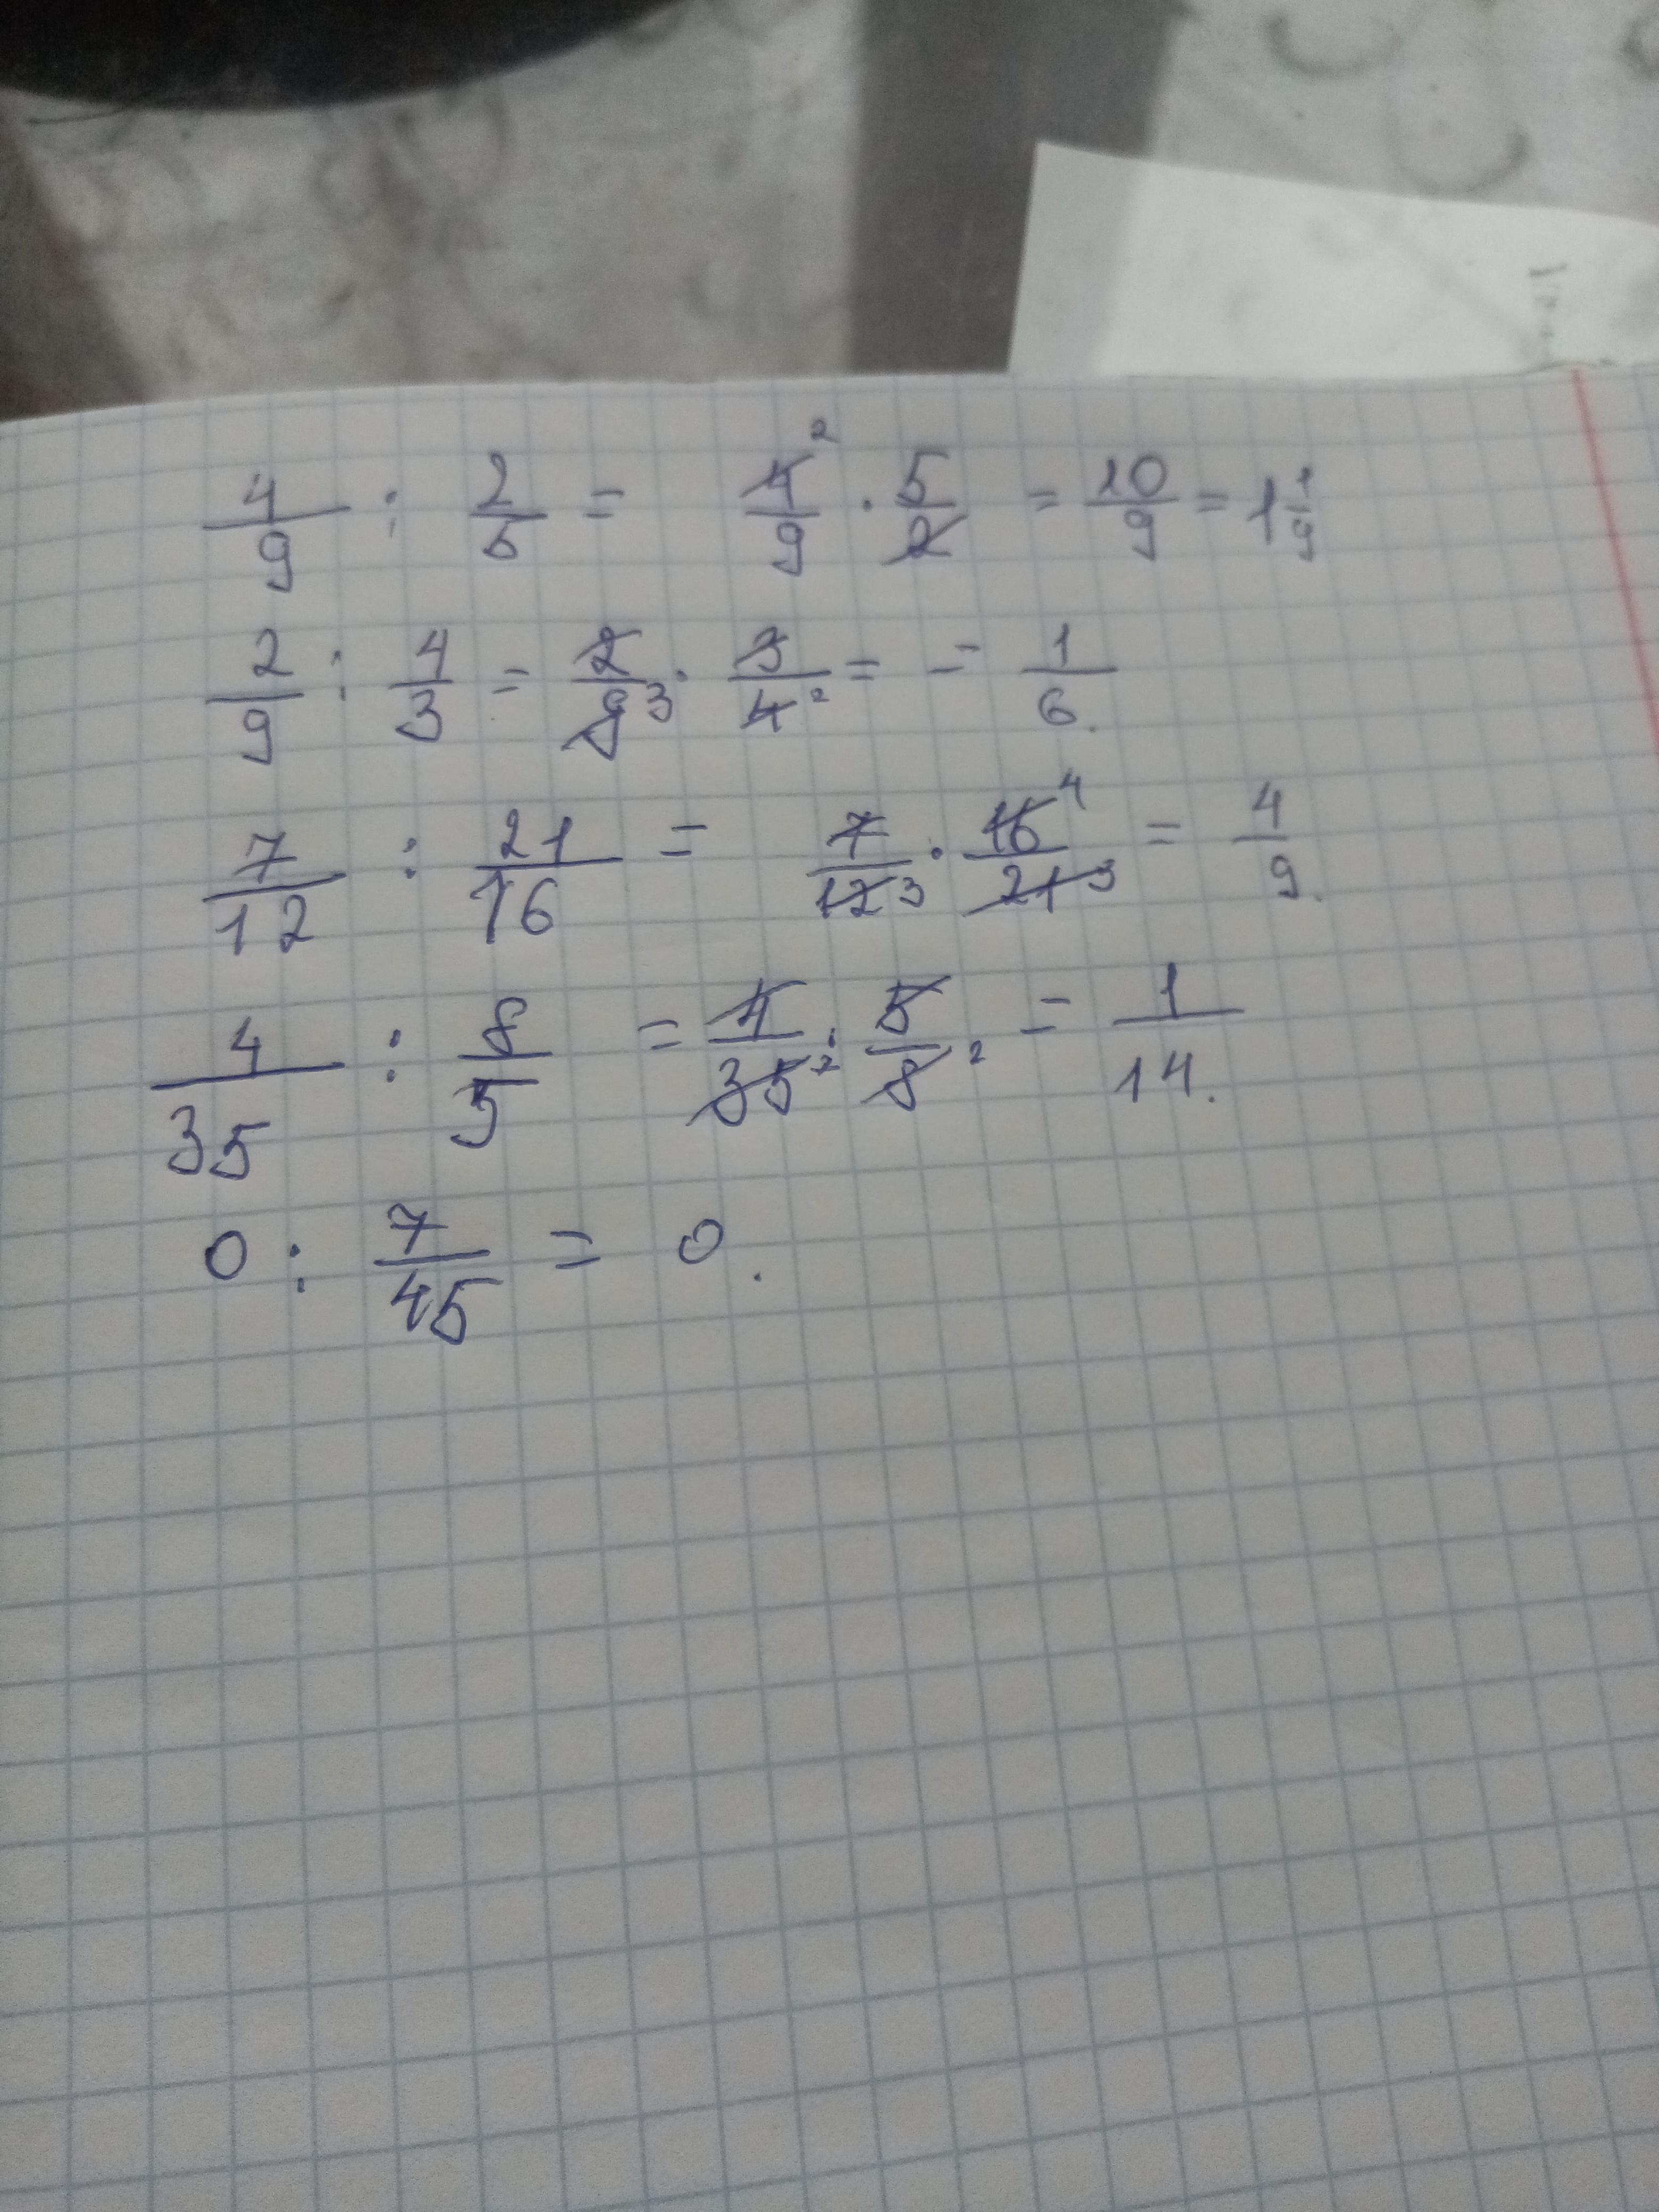 4/9 : 2/5 = 4²/9 · 5/2 = 10/9 = 1 1/9
2/9 : 4/3 = 2/9 3 · 3/4 2 = = 1/6.
7/12 : 21/16 = 7/12 3 · 16 4/21 3 = 4/9.
4/35 : 8/5 = 4/35 7 : 5/8 2 = 1/14.
0 : 7/45 = 0.